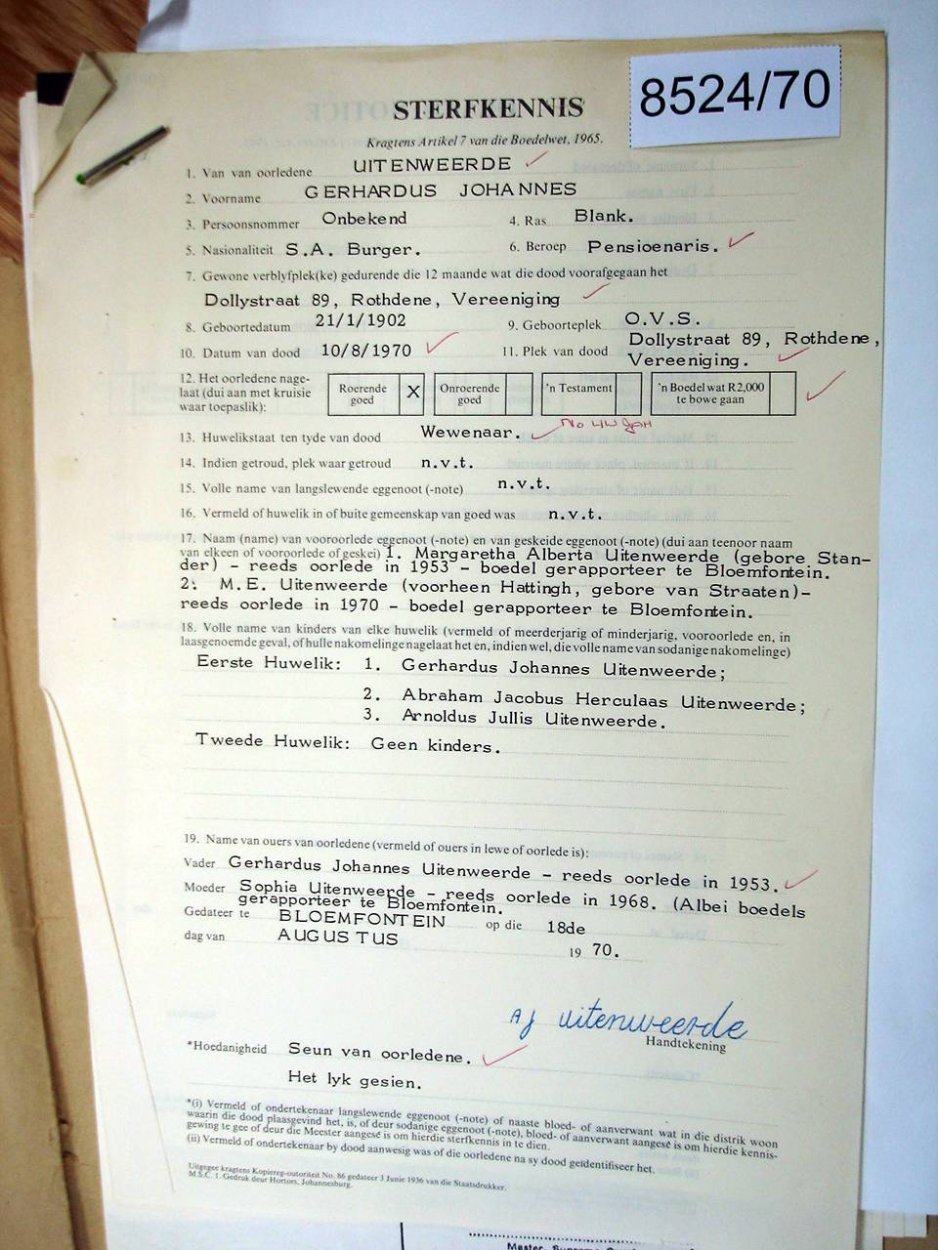 8524/70
STERFKENNIS
Kragtens Artikel 7 van die Boedelwet, 1965.
1. Van van oorledene UITENWEERDE
2. Voorname GERHARDUS JOHANNES
3. Persoonsnommer Onbekend 4. Ras Blank.
5. Nasionaliteit S.A. Burger. 6. Beroep Pensioenaris.
7. Gewone verblyfplek(ke) gedurende die 12 maande wat die dood voorafgegaan het
Dollystraat 89, Rothdene, Vereeniging
8. Geboortedatum 21/1/1902 9. Geboorteplek O.V.S.
10. Datum van dood 10/8/1970 11. Plek van dood Dollystraat 89, Rothdene,
Vereeniging.
12. Het oorledene nage-
laat (dui aan met kruisie
waar toepaslik):
Roerende
goed
X
Onroerende
goed
'n Testament
'n Boedel wat R2,000
te bowe gaan
13. Huwelikstaat ten tyde van dood Wewenaar. No
14. Indien getroud, plek waar getroud n.v.t.
15. Volle name van langslewende eggenoot (-note) n.v.t.
16. Vermeld of huwelik in of buite gemeenskap van goed was n.v.t.
17. Naam (name) van vooroorlede eggenoot (-note) en van geskeide eggenoot (-note) (dui aan teenoor naam
van elkeen of vooroorlede of geskei) 1. Margaretha Alberta Uitenweerde (gebore Stan-
der) - reeds oorlede in 1953 - boedel gerapporteer te Bloemfontein.
2. M.E. Uitenweerde (voorheen Hattingh, gebore van Straaten)-
reeds oorlede in 1970 - boedel gerapporteer te Bloemfontein.
18. Volle name van kinders van elke huwelik (vermeld of meerderjarig of minderjarig, vooroorlede en, in
laasgenoemde geval, of hulle nakomelinge nagelaat het en, indien wel, die volle name van sodanige nakomelinge)
Eerste Huwelik: 1. Gerhardus Johannes Uitenweerde;
2. Abraham Jacobus Herculaas Uitenweerde;
3. Arnoldus Jullis Uitenweerde.
Tweede Huwelik: Geen kinders.
19. Name van ouers van oorledene (vermeld of ouers in lewe of oorlede is):
Vader Gerhardus Johannes Uitenweerde - reeds oorlede in 1953.
Moeder Sophia Uitenweerde - reeds oorlede in 1968. (Albei boedels
gerapporteer te Bloemfontein.
Gedateer te BLOEMFONTEIN op die 18de
dag van AUGUSTUS 19 70.
AJ uitenweerde
Handtekening
*Hoedanigheid Seun van oorledene.
Het lyk gesien.
*(i) Vermeld of ondertekenaar langslewende eggenoot (-note) of naaste bloed- of aanverwant wat in die distrik woon
waarin die dood plaasgevind het, is, of deur sodanige eggenoot (-note), bloed- of aanverwant aangesê is om hierdie kennis-
gewing te gee of deur die Meester aangesê is om hierdie sterfkennis in te dien.
(ii) Vermeld of ondertekenaar by dood aanwesig was of die oorledene na sy dood geïdentifiseer het.
Uitgegee kragtens Kopiereg-outoriteit No. 86 gedateer 3 Junie 1936 van die Staatsdrukker.
M.S.C. 1. Gedruk deur Hortors, Johannesburg.